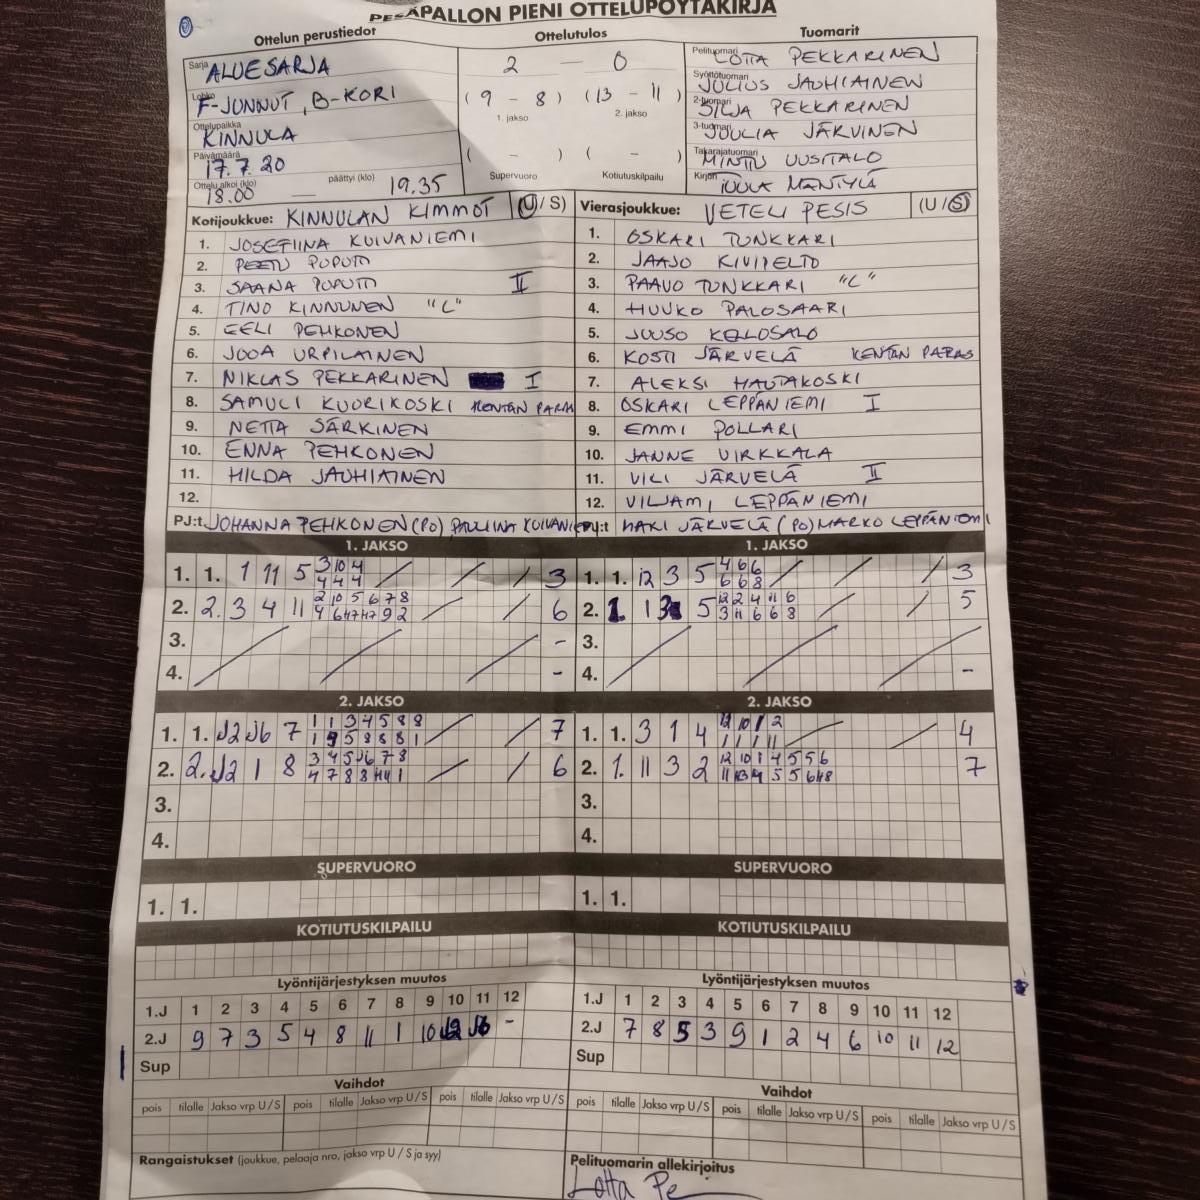 PESÄPALLON PIENI OTTELUPÖYTÄKIRJA
Ottelun perustiedot
Ottelutulos
Tuomarit
Sarja ALUESARJA
Lohko F-JUNNUT, B-KORI
Ottelupaikka KINNULA
Päivämäärä 17.7.20
Ottelu alkoi (klo) 18.00 — päättyi (klo) 19.35
2 — 0
(9 - 8) (13 - 11)
1. jakso 2. jakso
( - ) ( - )
Supervuoro Kotiutuskilpailu
Pelituomari LOTTA PEKKARINEN
Syöttötuomari JULIUS JAUHIAINEN
2-tuomari SILJA PEKKARINEN
3-tuomari JUULIA JÄRVINEN
Takarajatuomari MINTTU UUSITALO
Kirjuri TUULA MÄNTYLÄ
Kotijoukkue: KINNULAN KIMMOT (U/S)
1. JOSEFIINA KUIVANIEMI
2. PEETU POPUTTI
3. SAANA POPUTTI II
4. TINO KINNUNEN "C"
5. EELI PEHKONEN
6. JOOA URPILAINEN
7. NIKLAS PEKKARINEN I
8. SAMULI KUORIKOSKI KENTÄN PARAS
9. NETTA SÄRKINEN
10. ENNA PEHKONEN
11. HILDA JAUHIAINEN
12.
PJ:t JOHANNA PEHKONEN (PO) PAULIINA KUIVANIEMI
Vierasjoukkue: VETELI PESIS (U/S)
1. OSKARI TUNKKARI
2. JAAJO KIVIPELTO
3. PAAVO TUNKKARI "C"
4. HUUKO PALOSAARI
5. JUUSO KELLOSALO
6. KOSTI JÄRVELÄ KENTÄN PARAS
7. ALEKSI HAUTAKOSKI
8. OSKARI LEPPÄNIEMI I
9. EMMI POLLARI
10. JANNE VIRKKALA
11. VILI JÄRVELÄ II
12. VILJAMI LEPPÄNIEMI
PJ:t HAKI JÄRVELÄ (PO) MARKO LEPPÄNIEMI
1. JAKSO
1. 1. 1 11 5 3 10 4
4 4 4
3
2. 2. 3 4 11 2 10 5 6 7 8
6
3. -
4. -
1. JAKSO
1. 1. 12 3 5 4 6 6
6 6 8
3
2. 1. 1 3 5 12 2 4 11 6
3 11 6 6 8
5
3.
4. -
2. JAKSO
1. 1. 7 1 1 3 4 5 8 8
1 5 8 8 8 1
7
2. 2. 1 8 3 4 5 7 8
4 7 8 8 1
6
3.
4.
2. JAKSO
1. 1. 3 1 4 12 10 1 2
1 1 1 11
4
2. 1. 11 3 2 12 10 1 4 5 5 6
7
3.
4.
SUPERVUORO
1. 1.
SUPERVUORO
1. 1.
KOTIUTUSKILPAILU
KOTIUTUSKILPAILU
Lyöntijärjestyksen muutos
1.J 1 2 3 4 5 6 7 8 9 10 11 12
2.J 9 7 3 5 4 8 11 1 10 -
Sup
Lyöntijärjestyksen muutos
1.J 1 2 3 4 5 6 7 8 9 10 11 12
2.J 7 8 5 3 9 1 2 4 6 10 11 12
Sup
Vaihdot
pois tilalle Jakso vrp U/S pois tilalle Jakso vrp U/S pois tilalle Jakso vrp U/S
Vaihdot
pois tilalle Jakso vrp U/S pois tilalle Jakso vrp U/S pois tilalle Jakso vrp U/S
Rangaistukset (joukkue, pelaaja nro, jakso vrp U/S ja syy)
Pelituomarin allekirjoitus
Lotta Pe